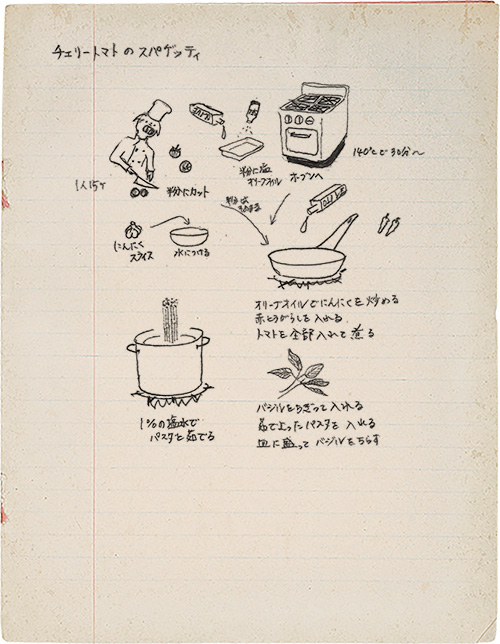 チェリートマトのスパゲッティ
1人15ケ
半分にカット
半分に塩
オリーブオイル
オーブンへ
140℃で30分〜
半分は
そのまま
にんにく
スライス
水につける
オリーブオイルでにんにくを炒める
赤とうがらしを入れる
トマトを全部入れて煮る
1%の塩水で
パスタを茹でる
バジルをちぎって入れる
茹で上ったパスタを入れる
皿に盛ってバジルをちらす